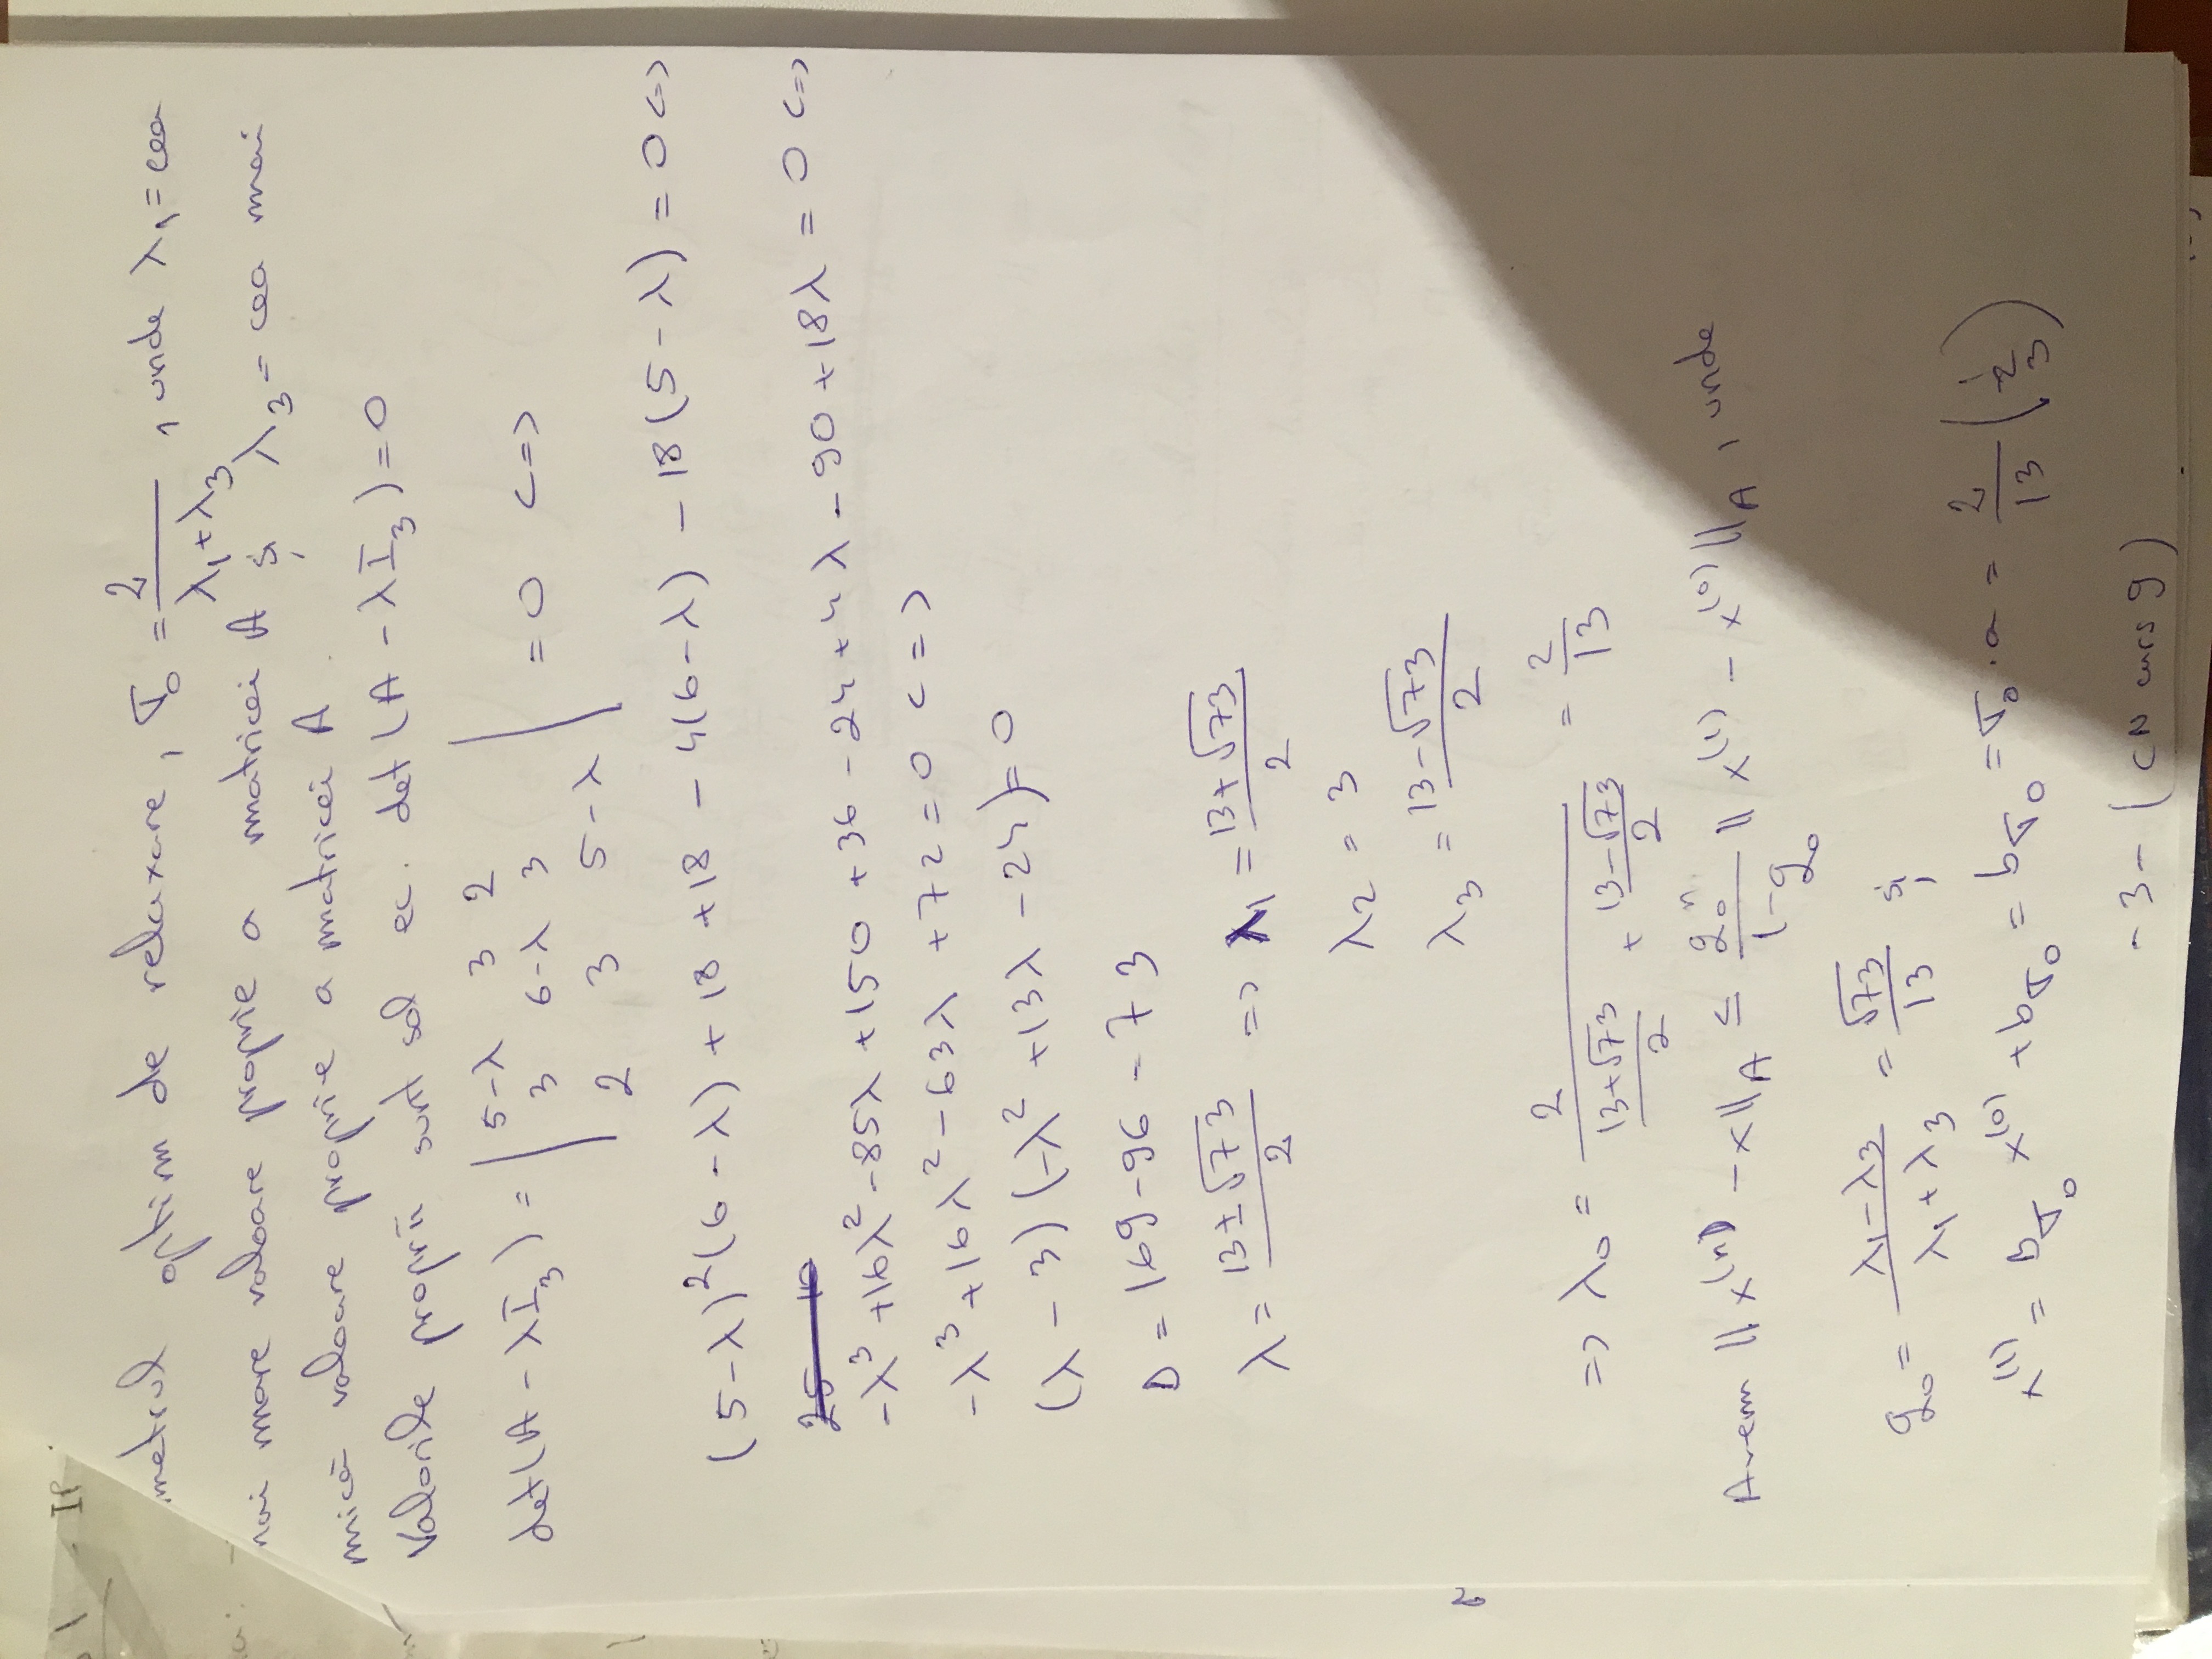 metrul optim de relaxare, σ₀ = 2/(λ₁+λ₃), unde λ₁ = cea
mai mare valoare proprie a matricei A și λ₃ = cea mai
mică valoare proprie a matricei A.
Valorile proprii sunt sol ec. det(A - λI₃) = 0
det(A - λI₃) = | 5-λ 3 2
3 6-λ 3
2 3 5-λ | = 0 <=>
(5-λ)²(6-λ) + 18 + 18 - 4(6-λ) - 18(5-λ) = 0 <=>
-λ³ + 16λ² - 85λ + 150 + 36 - 24 + 4λ - 90 + 18λ = 0 <=>
-λ³ + 16λ² - 63λ + 72 = 0 <=>
(λ - 3)(-λ² + 13λ - 24) = 0
D = 169 - 96 = 73
λ = (13±√73)/2 => λ₁ = (13+√73)/2
λ₂ = 3
λ₃ = (13-√73)/2
=> λ₀ = 2/((13+√73)/2 + (13-√73)/2) = 2/13
Avem ||x⁽ⁿ⁾ - x||_A ≤ q₀ⁿ/(1-q₀) ||x⁽¹⁾ - x⁽⁰⁾||_A, unde
q₀ = (λ₁-λ₃)/(λ₁+λ₃) = √73/13 și
x⁽¹⁾ = B_σ₀ x⁽⁰⁾ + b_σ₀ = b_σ₀ = σ₀·a = 2/13 (1 2 3)
- 3 - (CN curs 9)